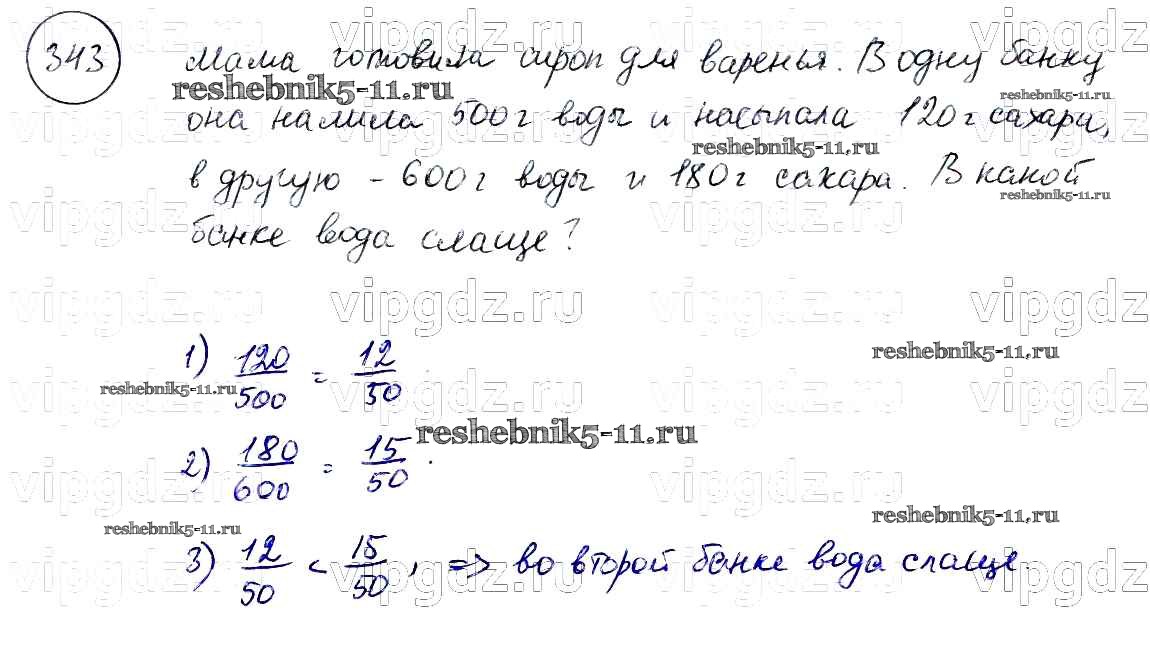 343
Мама готовила сироп для варенья. В одну банку
она налила 500 г воды и насыпала 120 г сахара,
в другую – 600 г воды и 180 г сахара. В какой
банке вода слаще?
1) 120/500 = 12/50
2) 180/600 = 15/50.
3) 12/50 < 15/50, => во второй банке вода слаще.
reshebnik5-11.ru
reshebnik5-11.ru
reshebnik5-11.ru
reshebnik5-11.ru
reshebnik5-11.ru
reshebnik5-11.ru
reshebnik5-11.ru
reshebnik5-11.ru
reshebnik5-11.ru
vipgdz.ru vipgdz.ru vipgdz.ru vipgdz.ru
vipgdz.ru vipgdz.ru vipgdz.ru vipgdz.ru
vipgdz.ru vipgdz.ru vipgdz.ru vipgdz.ru
vipgdz.ru vipgdz.ru vipgdz.ru vipgdz.ru
vipgdz.ru vipgdz.ru vipgdz.ru vipgdz.ru
vipgdz.ru vipgdz.ru vipgdz.ru vipgdz.ru
vipgdz.ru vipgdz.ru vipgdz.ru vipgdz.ru